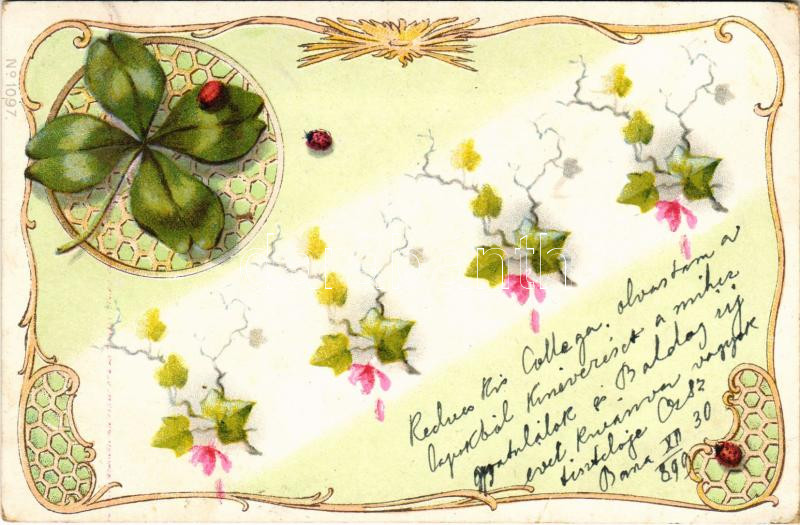 No 1097
Kedves kis Collega, olvastam a
lapokból kinevezését a mihez
gratulálok & Boldog uj
évet kivánva vagyok
tisztelője
XII 30
899